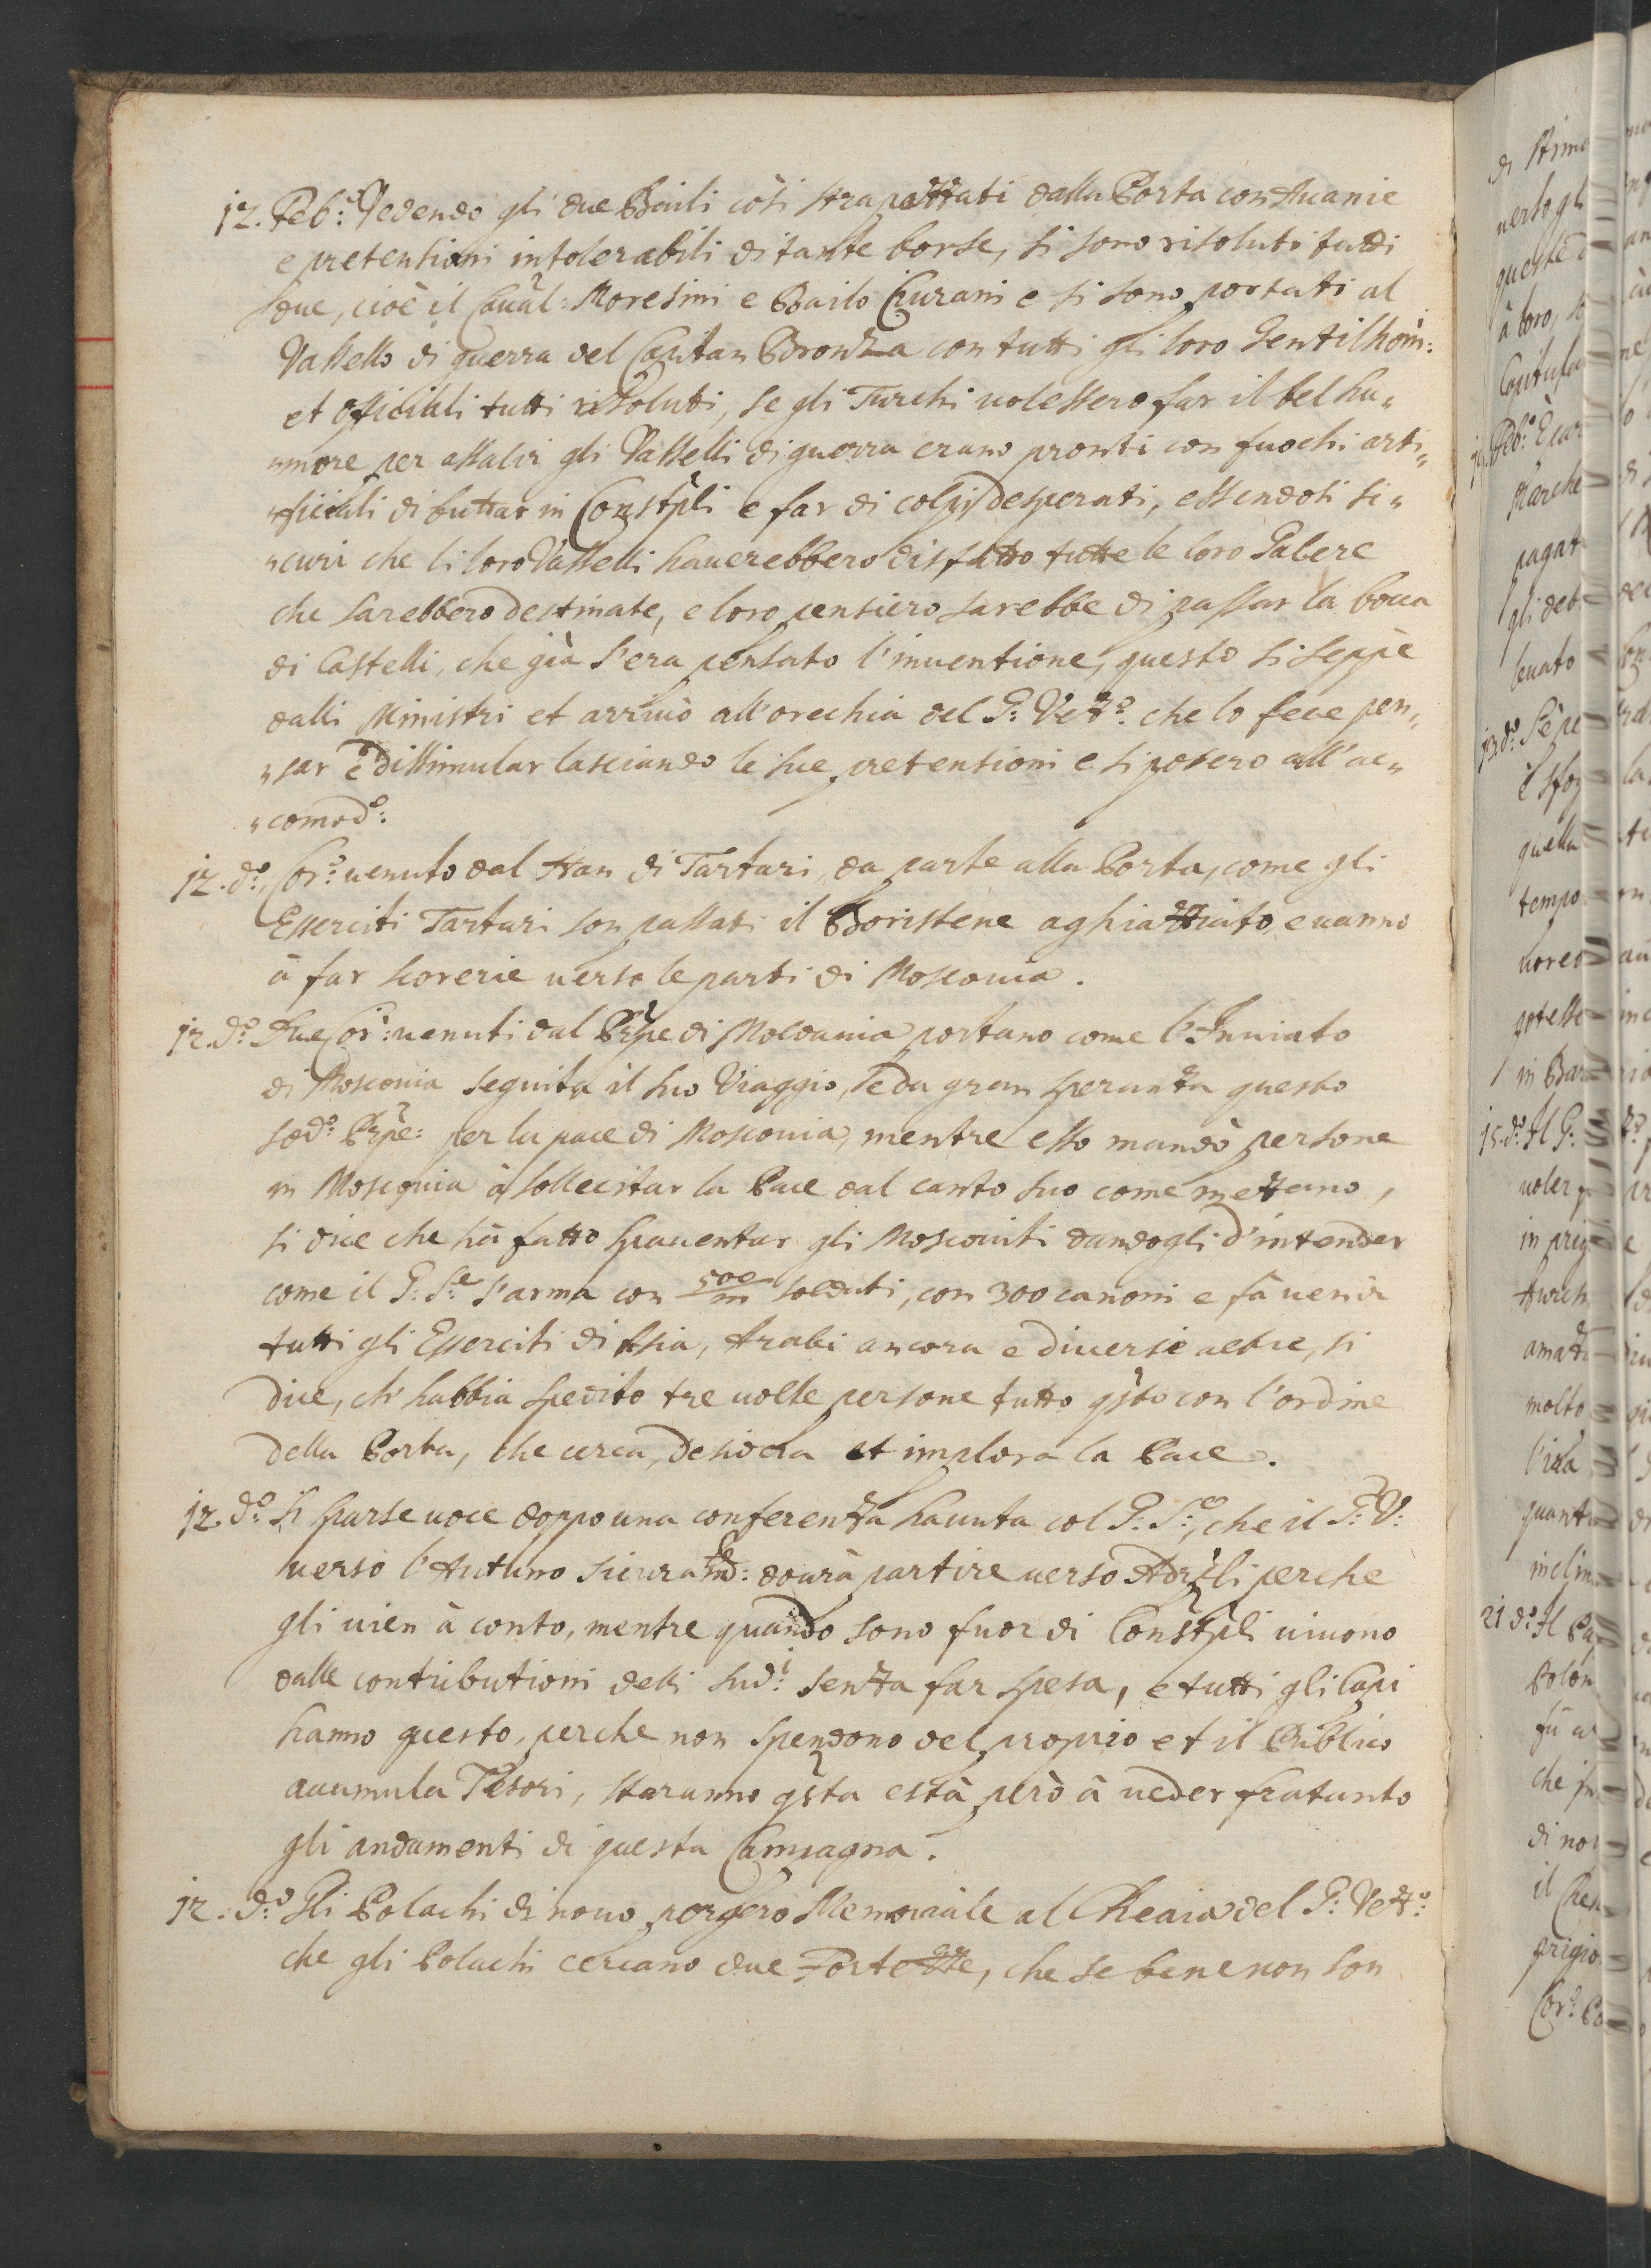 12. Feb:º Vedendo gli due Baili così strapazzati dalla Porta con Auanie
e pretensioni intolerabili di tante borse, si sono risoluti tutti
due, cioè il Caual:r Moresini e Bailo Ciurani e si sono portati al
Vassello di guerra del Capitan Bronza con tutti gli loro Gentilhom:
et officiali tutti risoluti, se gli Turchi uolessero far il bel hu„
„more per assalir gli Vasselli di guerra erano pronti con fuochi arti„
„ficiali di buttar in Constpli e far di colpi desperati, essendosi si„
„curi che li loro Vasselli hauerebbero disfatto tutte le loro Galere
che sarebbero destinate, e loro pensiero sarebbe di passar la bocca
di Castelli, che già s'era pensato l'inuentione, questo si seppè
dalli Ministri et arriuò all'orechia del G: Vezº: che lo fece pen„
„sar è dissimular lasciando le sue pretensioni e si posero all'ac„
„comodº:
12. dº: Corº: uenuto dal Han di Tartari, da parte alla Porta, come gli
Esserciti Tartari son passati il Boristene aghiazziato, e uanno
à far scorerie uerso le parti di Moscouia.
12. dº: Due Cori: uenuti dal Prpe di Moldauia portano come l'Inuiato
di Moscouia seguita il suo Viaggio, se da gran speranza questo
sodº: Prpe: per la pace di Moscouia, mentre esso mandò persone
in Moscouia à sollecitar la Pace dal canto suo come mezzano,
si dice che hà fatto spauentar gli Moscouiti dandogli d'intender
come il G: Sre s'arma con 500/m soldati, con 300 canoni e fà uenir
tutti gli Esserciti di Asia, Arabi ancora e diuersi altre, si
dice, ch'habbia spedito tre uolte persone tutto qsto con l'ordine
della Porta, che cerca, desidera et implora la Pace.
12. dº: Si sparse uoce doppo una conferenza hauuta col G: S:re, che il G: V:
uerso l'Autuno sicuramte: dourà partire uerso Adrpli perche
gli uien à conto, mentre quando sono fuor di Constpli uiuono
dalle contributioni delli sudi: senza far spesa, e tutti gli Capi
hanno questo, perche non spendono del proprio et il Publico
acumula Tesori, staranno qsta està però à ueder fratanto
gli andamenti di questa Campagna.
12. dº: Gli Polachi di nouo porgero Memoriale al Cheaia del G: Vezº:
che gli Polachi cercano due Fortezze, che se bene non son